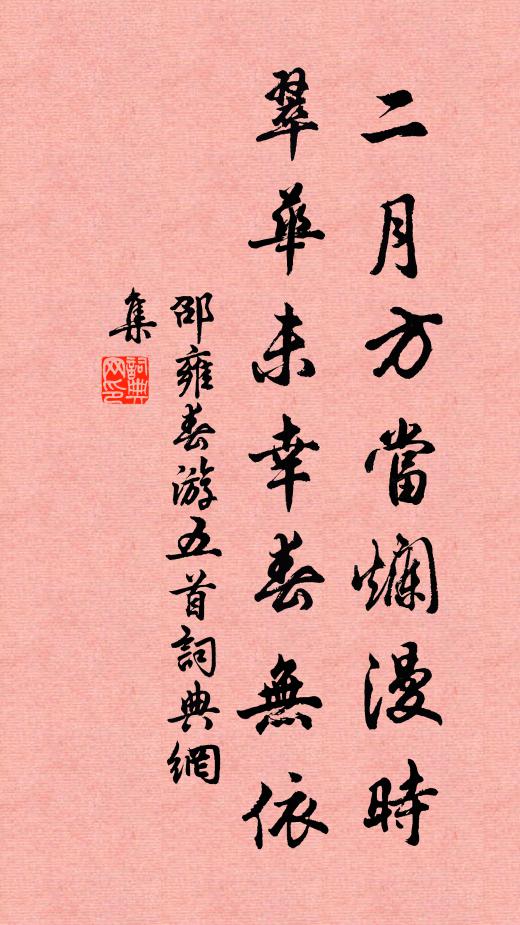 二月方當爛漫時
翠華未幸春無依
邵雍春游五首詞典網
集
詞典網印